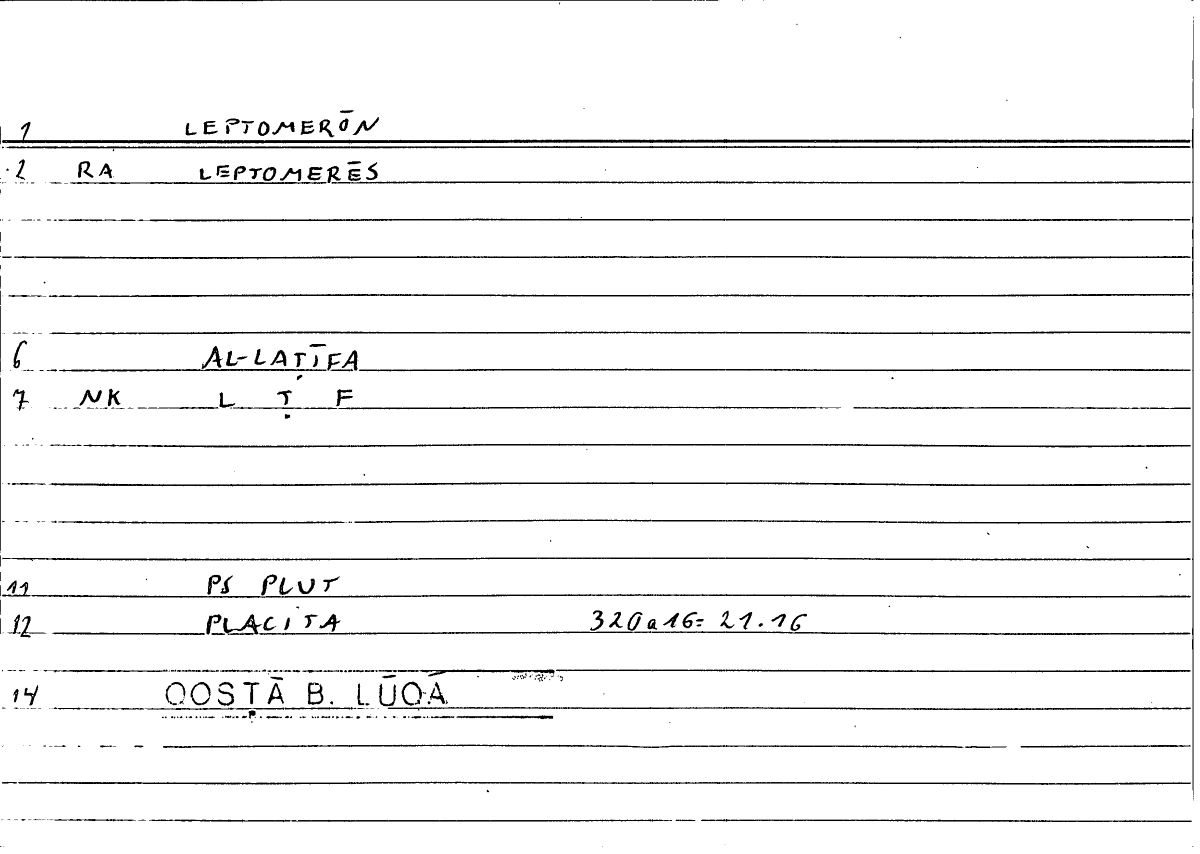 1 LEPTOMERŌN
2 RA LEPTOMERĒS
6 AL-LAṬĪFA
7 NK L Ṭ F
11 PS PLUT
12 PLACITA 320a16= 21.16
14 QOSṬĀ B. LŪQĀ